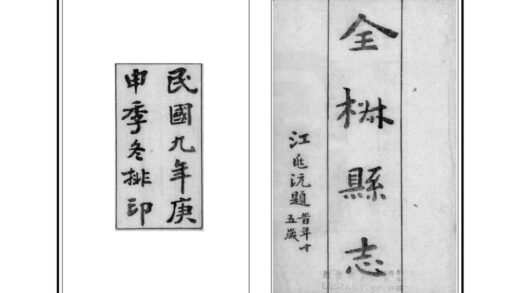 全椒縣志
江兆沅題
旹年十
五歲
民國九年庚
申季冬排印